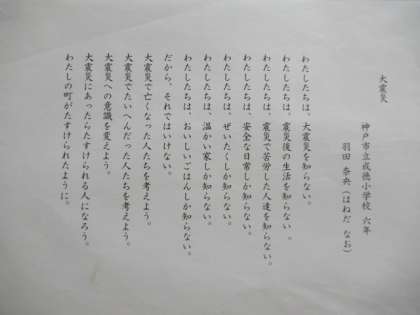 大震災
神戸市立成徳小学校 六年
羽田 奈央(はねだ なお)
わたしたちは、大震災を知らない。
わたしたちは、震災後の生活を知らない。
わたしたちは、震災で苦労した人達を知らない。
わたしたちは、安全な日常しか知らない。
わたしたちは、ぜいたくしか知らない。
わたしたちは、温かい家しか知らない。
わたしたちは、おいしいごはんしか知らない。
だから、それではいけない。
大震災で亡くなった人たちを考えよう。
大震災でたいへんだった人たちを考えよう。
大震災への意識を変えよう。
大震災にあったらたすけられる人になろう。
わたしの町がたすけられたように。